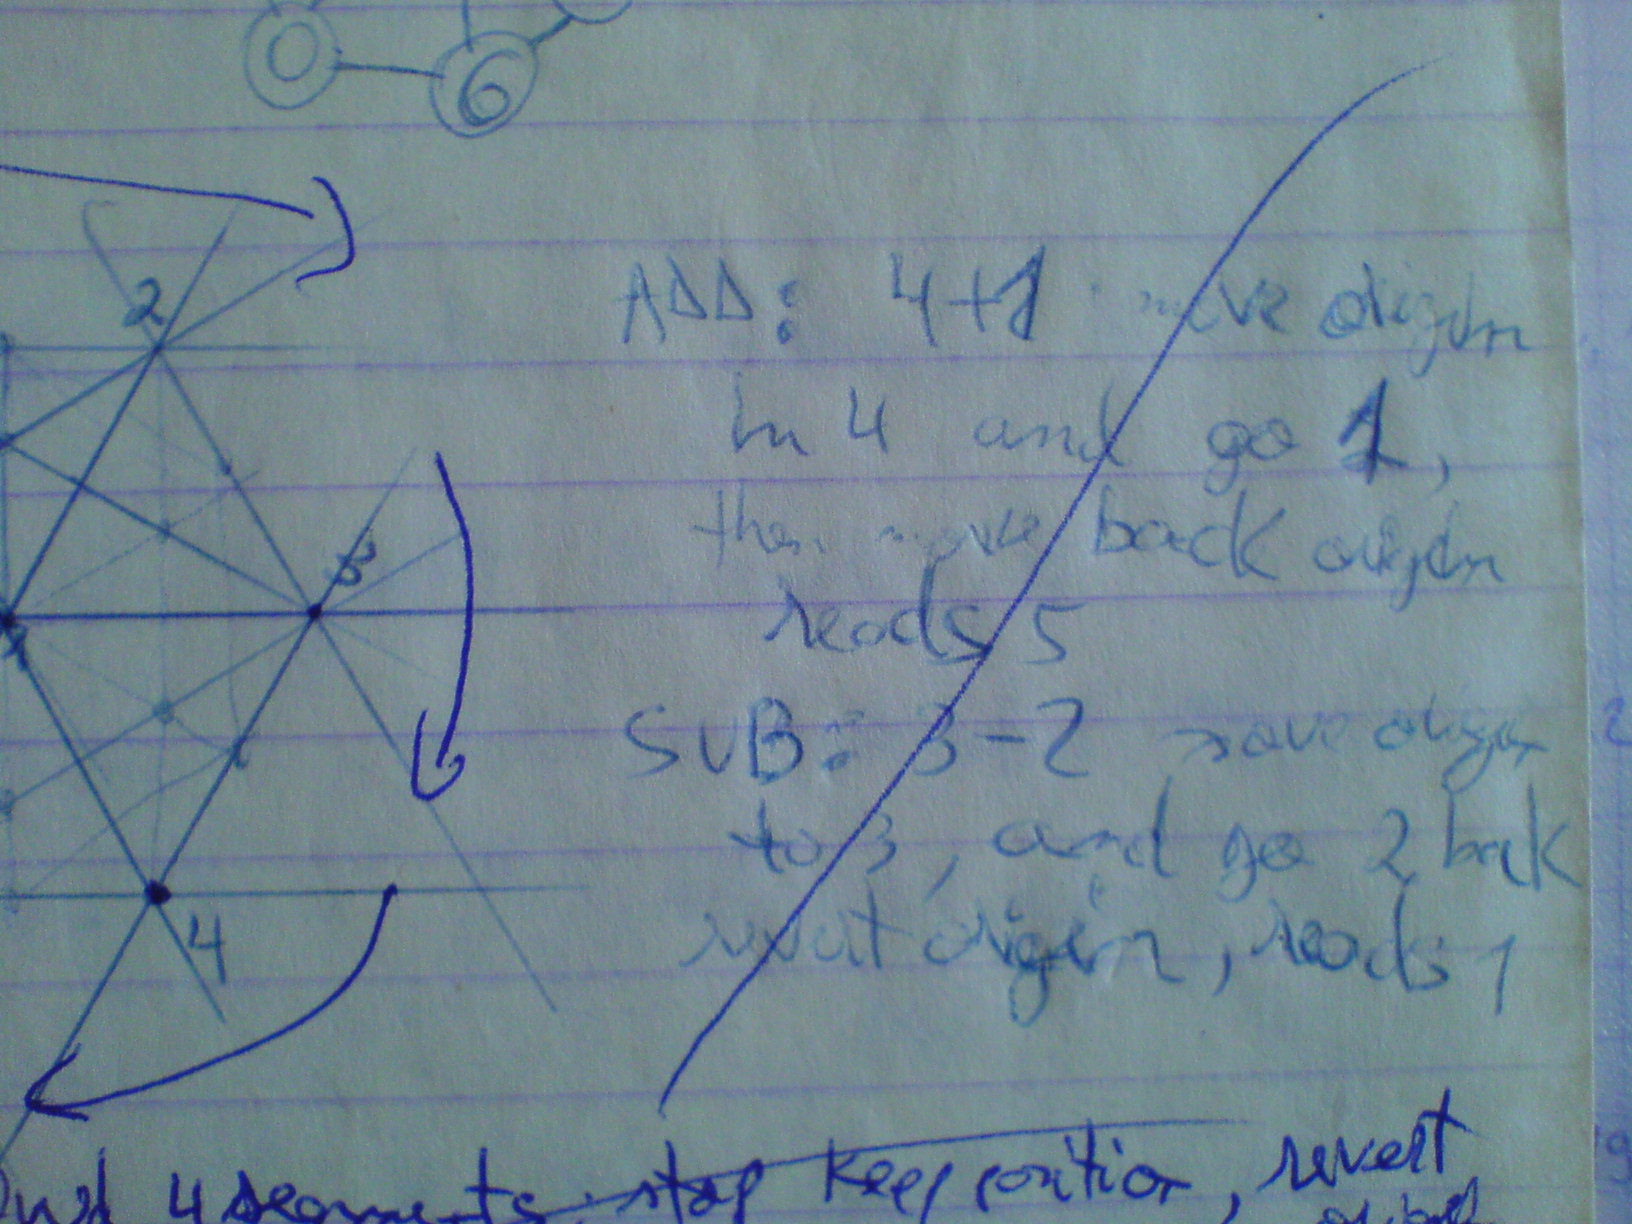 0 6
2
ADD: 4+1 move origin
in 4 and go 1,
then move back origin
3
reads 5
1
SUB: 3-2 move origin
to 3, and go 2 back
4
revert origin, reads 1
4 segments, stop keep position, revert